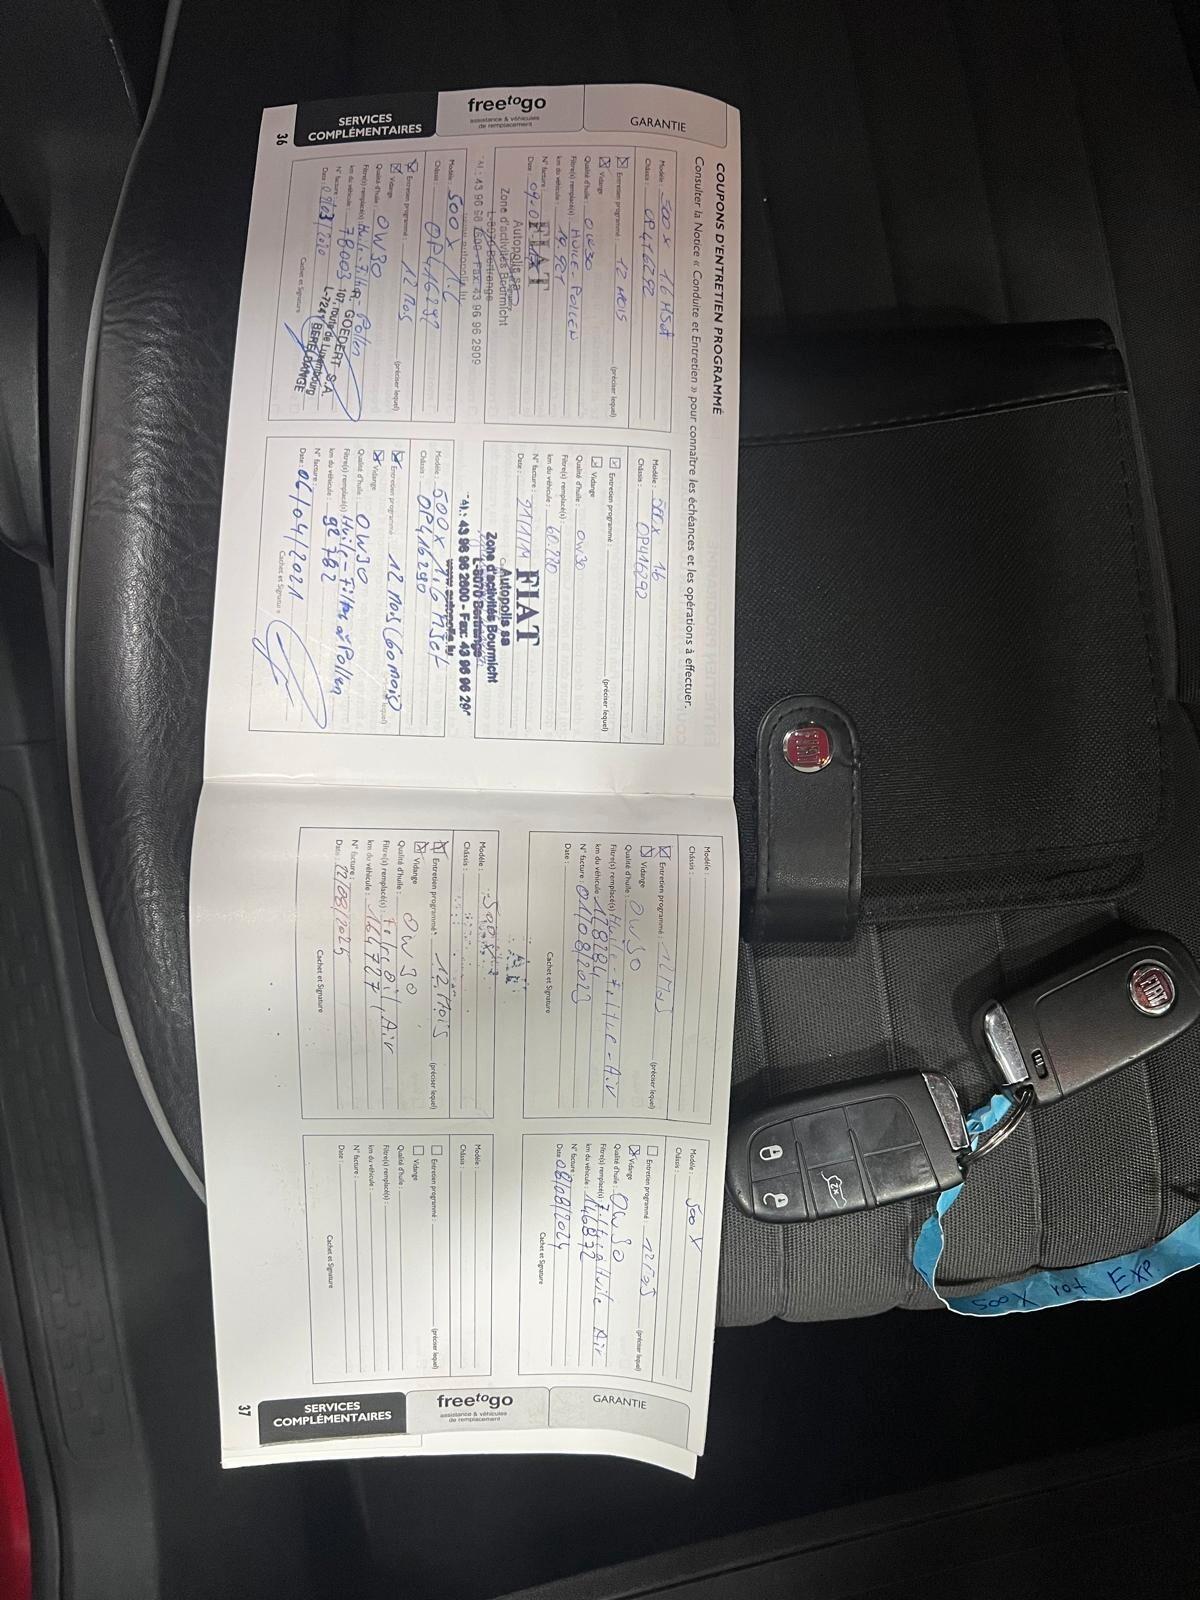 COUPONS D'ENTRETIEN PROGRAMMÉ
Consulter la Notice « Conduite et Entretien » pour connaître les échéances et les opérations à effectuer.
GARANTIE
freetogo
assistance & véhicules
de remplacement
SERVICES
COMPLÉMENTAIRES
36
Modèle : 500 X 1.6 MJet
Châssis : 0P416292
Entretien programmé : 12 MOIS
(préciser lequel)
Vidange
Qualité d'huile : 0W30
Filtre(s) remplacé(s) : HUILE POLLEN
km du véhicule :
N° facture :
Date :
FIAT
Autopolis sa
Zone d'activités Bourmicht
L-8070 Bertrange
Tél.: 43 96 96 2600 - Fax: 43 96 96 2909
www.autopolis.lu
Modèle : 500X 1.6
Châssis : 0P416292
Entretien programmé :
(préciser lequel)
Vidange
Qualité d'huile : 0W30
Filtre(s) remplacé(s) :
km du véhicule : 60.220
N° facture :
Date :
FIAT
Autopolis sa
Zone d'activités Bourmicht
L-8070 Bertrange
Tél.: 43 96 96 2600 - Fax: 43 96 96 29
www.autopolis.lu
Modèle : 500 X 1.6
Châssis : 0P416292
Entretien programmé : 12 Mois
(préciser lequel)
Vidange
Qualité d'huile : 0W30
Filtre(s) remplacé(s) : Huile - Filtre Pollen
km du véhicule : 78003
N° facture :
Date : /03/2020
Cachet et Signature
GOEDERT S.A.
107, route de Luxembourg
L-7241 BERELDANGE
Modèle : 500 X 1,6 MJet
Châssis : 0P416290
Entretien programmé : 12 Mois (60 mois)
(préciser lequel)
Vidange
Qualité d'huile : 0W30
Filtre(s) remplacé(s) Huile - Filtre à Pollen
km du véhicule : 92 762
N° facture :
Date : 06/04/2021
Cachet et Signature
Modèle :
Châssis :
Entretien programmé : 12 Mois
(préciser lequel)
Vidange
Qualité d'huile : 0W30
Filtre(s) remplacé(s) Huile - Filtre - Air
km du véhicule : 128284
N° facture : 01/08/2023
Date :
Cachet et Signature
Modèle : 500 X
Châssis :
Entretien programmé : 12 Mois
(préciser lequel)
Vidange
Qualité d'huile : 0W30
Filtre(s) remplacé(s) : Filtre Huile Air
km du véhicule : 146872
N° facture :
Date : 08/08/2024
Cachet et Signature
Modèle : 500X
Châssis :
Entretien programmé : 12 Mois
(préciser lequel)
Vidange
Qualité d'huile : 0W30
Filtre(s) remplacé(s) : Filtre Oil, Air
km du véhicule : 164727
N° facture :
Date : 22/08/2025
Cachet et Signature
Modèle :
Châssis :
Entretien programmé :
(préciser lequel)
Vidange
Qualité d'huile :
Filtre(s) remplacé(s) :
km du véhicule :
N° facture :
Date :
Cachet et Signature
GARANTIE
freetogo
assistance & véhicules
de remplacement
SERVICES
COMPLÉMENTAIRES
37
FIAT
FIAT
2x
500X rot EXP.